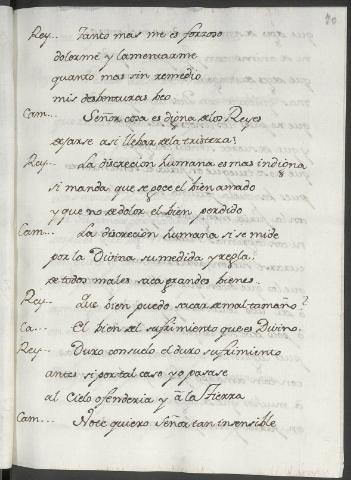 70
Rey... Tanto mas me es forzoso
dolerme y lamentarme
quanto mas sin remedio
mis desbenturas beo.
Cam... Señor cosa es digna de los Reyes
dejarse asi llebar de la tristeza?
Rey... La discrecion humana es mas indigna
si manda que se goce el bien amado
y que no se dolor el bien perdido
Cam... La discrecion humana si se mide
por la Divina su medida y regla.
de todos males saca grandes bienes..
Rey... Que bien puedo sacar de mal tamaño?
Ca... El bien del sufrimiento que es Divino.
Rey... Duro consuelo el duro sufrimiento
antes si por tal caso yo pasase
al Cielo ofenderia y à la Tierra
Cam... No te quiero Señor tan insensible